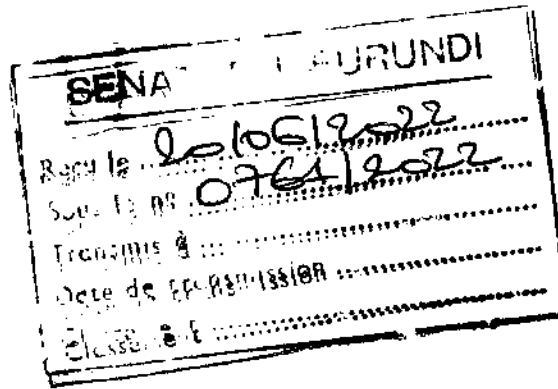 SENAT BURUNDI
Reçu le 20/06/2022
Sous le n° /2022
Transmis à
Date de transmission
Classement